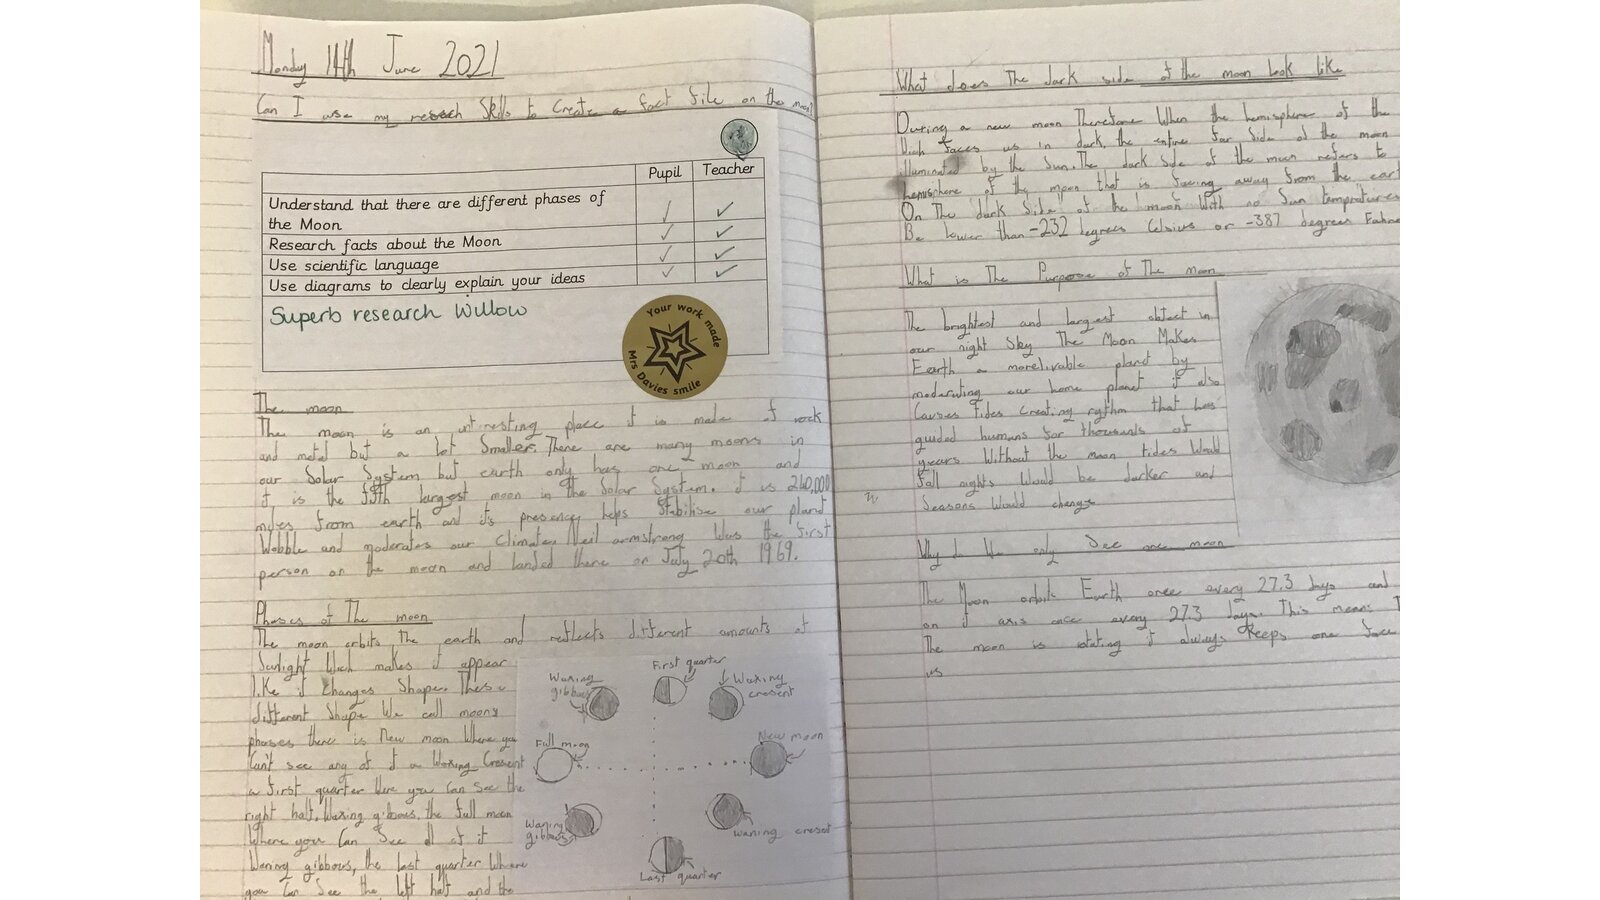 Monday 14th June 2021
Can I use my reseach Skills to Create a fact file on the moon?
Pupil Teacher
Understand that there are different phases of
the Moon
Research facts about the Moon
Use scientific language
Use diagrams to clearly explain your ideas
Superb research Willow
Your work made
Mrs Davies smile
The moon
The moon is an intresting place it is made of rock
and metal but a lot Smaller. There are many moons in
our Solar System but earth only has one moon and
it is the fifth largest moon in the Solar System. it is 240,000
miles from earth and its presence helps Stabilise our planet
Wobble and moderates our Climate. Neil armstrong Was the first
person on the moon and landed there on July 20th 1969.
Phases of The moon
The moon orbits The earth and reflects different amounts of
Sunlight Wich makes it appear
like it changes Shape. These
different Shape We call moons
phases there is New moon Where you
Can't see any of it a Waxing Cresent
a first quarter Were you Can See the
right half, Waxing gibbous, the full moon
Where you Can See all of it
Waning gibbous, the last quarter Where
you Can See the left half and the
Waxing
gibbous
First quarter
Waxing
cresent
Full moon
New moon
Waning
gibbous
waning cresent
Last quarter
What does The dark side of the moon Look like
During a new moon Therefore When the hemisphere of the
Wich faces us in dark, the entire far Side of the moon
illuminated by the Sun. The dark Side of the moon refers to
hemisphere of the moon that is facing away from the
On The "dark Side" of the moon With no Sun tempratures
Be lower than -232 degrees Celsius or -387 degrees
What is The Purpose of The moon
The brightest and largest object in
our night Sky The Moon Makes
Earth a more livable planet by
moderating our home planet it also
Causes tides Creating rythm that has
guided humans for thousands of
years Without the moon tides Would
fall nights Would be darker and
Seasons Would change
Why do We only See one moon
The Moon orbits Earth once every 27.3 days and
on it axis once every 27.3 days. This means
The moon is rotating it always Keeps one face
us